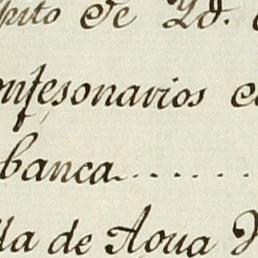 pito de Yd.
onfesonarios c
banca.......
lla de Agua V